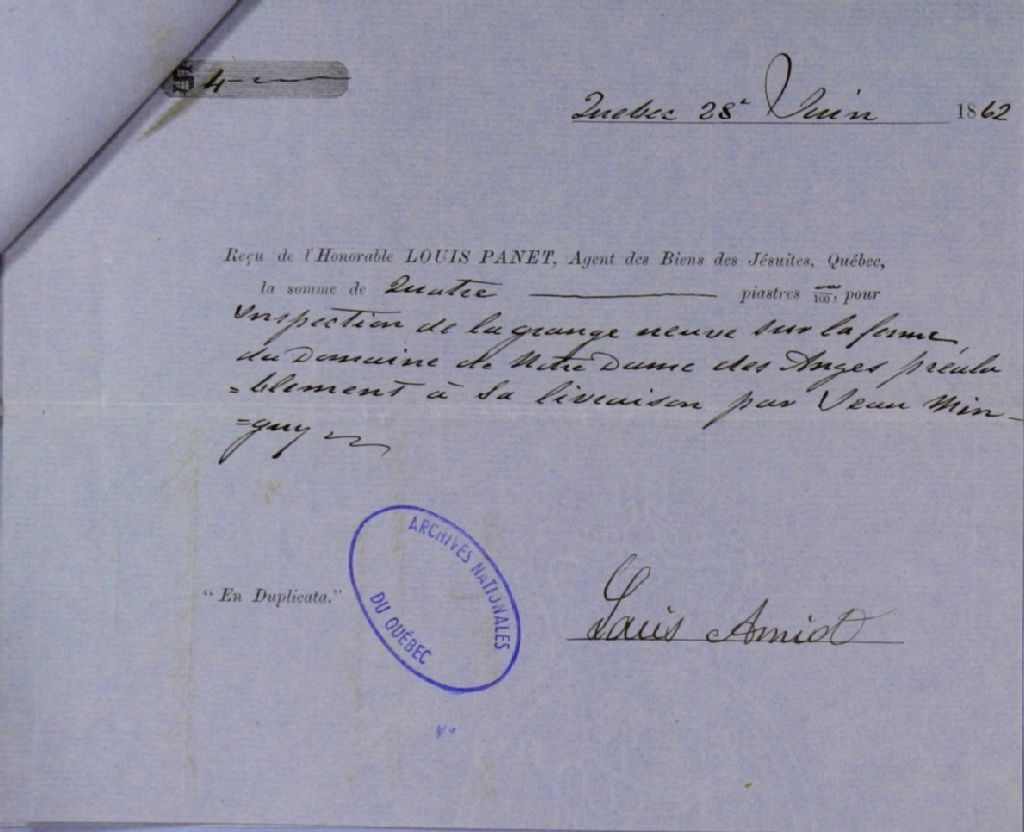 $ 4
Quebec 28e Juin 1862
Reçu de l'Honorable LOUIS PANET, Agent des Biens des Jésuites, Québec,
la somme de Quatre piastres /100, pour
Inspection de la grange neuve sur la ferme
du Domaine de Notre Dame des Anges préala
=blement à sa livraison par Jean Min-
=guy
ARCHIVES NATIONALES
DU QUÉBEC
"En Duplicata."
Louis Amiot